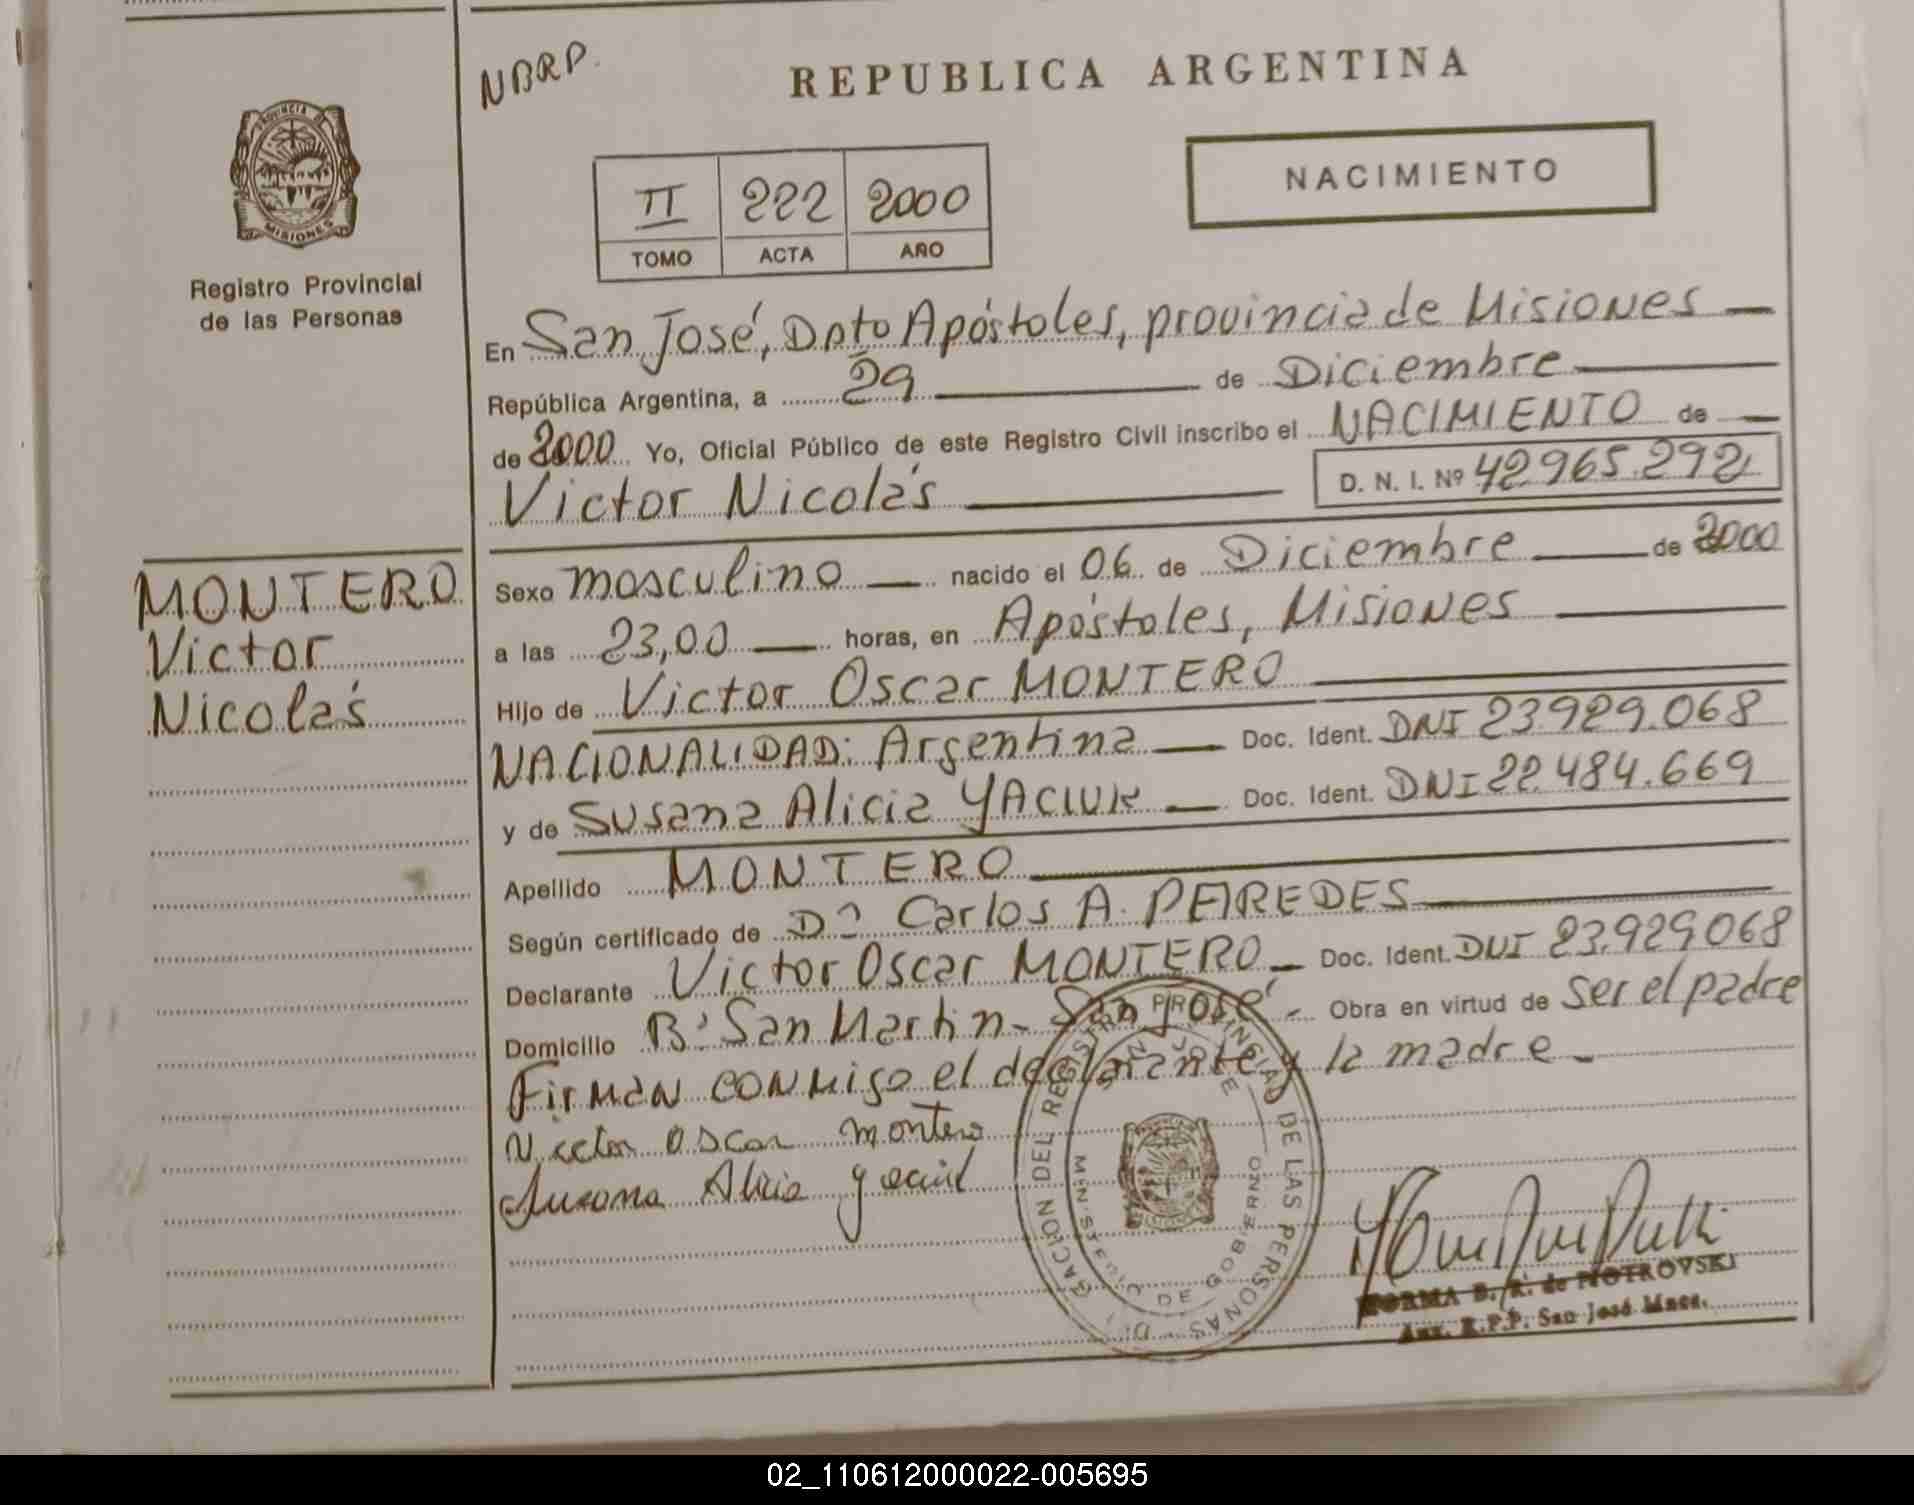 NBRP.
REPUBLICA ARGENTINA
PROVINCIA DE
MISIONES
Registro Provincial
de las Personas
II 222 2000
TOMO ACTA AÑO
NACIMIENTO
En San José, Dpto Apóstoles, provincia de Misiones
República Argentina, a 29 de Diciembre
de 2000 Yo, Oficial Público de este Registro Civil inscribo el NACIMIENTO de
Victor Nicolás D. N. I. Nº 42965.292
MONTERO
Victor
Nicolás
Sexo masculino nacido el 06 de Diciembre de 2000
a las 23,00 horas, en Apóstoles, Misiones
Hijo de Victor Oscar MONTERO
NACIONALIDAD: Argentina Doc. Ident. DNI 23.929.068
y de Susana Alicia YACIUK Doc. Ident. DNI 22.484.669
Apellido MONTERO
Según certificado de Dr Carlos A. PAREDES
Declarante Victor Oscar MONTERO Doc. Ident. DNI 23.929.068
Domicilio Bº San Martin - San José - Obra en virtud de ser el padre
Firman conmigo el declarante y la madre -
Victor Oscar montero
Susana Alicia Yaciuk
DEL REGISTRO PROVINCIAL DE LAS PERSONAS
SAN JOSE
MINISTERIO DE GOBIERNO
NORMA B. R. de PIOTROVSKI
Aux. R.P.P. San José Mnes.
02_110612000022-005695